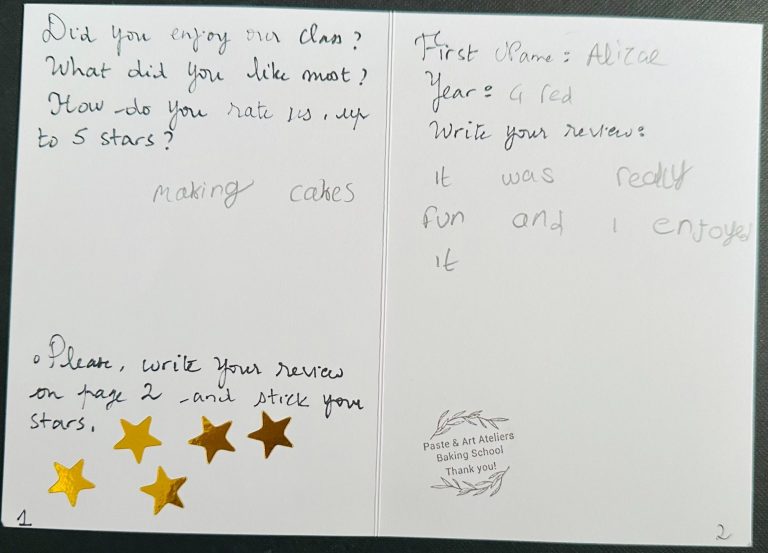 Did you enjoy our class?
What did you like most?
How do you rate us, up
to 5 stars?
making cakes
Please, write your review
on page 2 and stick your
stars.
1
First Name: Alizae
Year: 4 red
Write your review:
it was really
fun and i enjoyed
it
Paste & Art Ateliers
Baking School
Thank you!
2